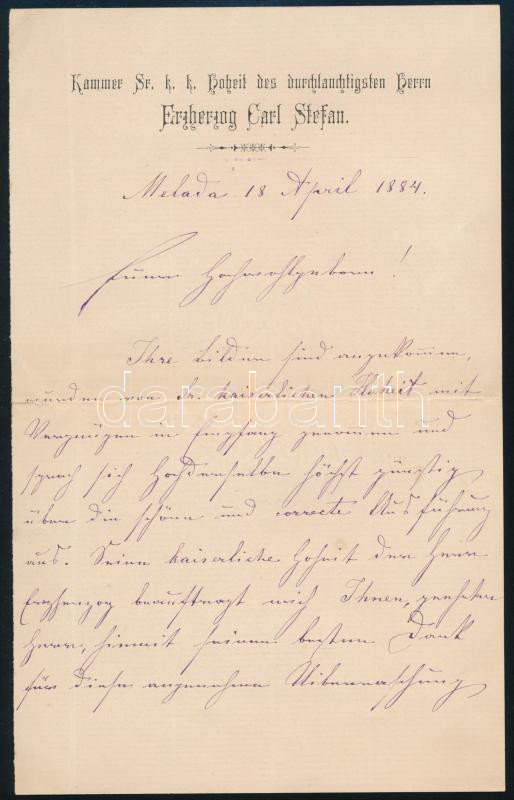 Kammer Sr. k. k. Hoheit des durchlauchtigsten Herrn
Erzherzog Carl Stefan.
Melada 18 April 1884.
Euer Hochwohlgeboren!
Ihre Bilder sind angekommen,
wurden von Sr. kaiserlichen Hoheit mit
Vergnügen in Empfang genommen und
sprach sich Hochderselbe höchst günstig
über die schöne und correcte Ausführung
aus. Seine kaiserliche Hoheit der Herr
Erzherzog beauftragt mich Ihnen, geehrter
Herr, hiemit seinen besten Dank
für diese angenehme Uiberraschung
darabanth